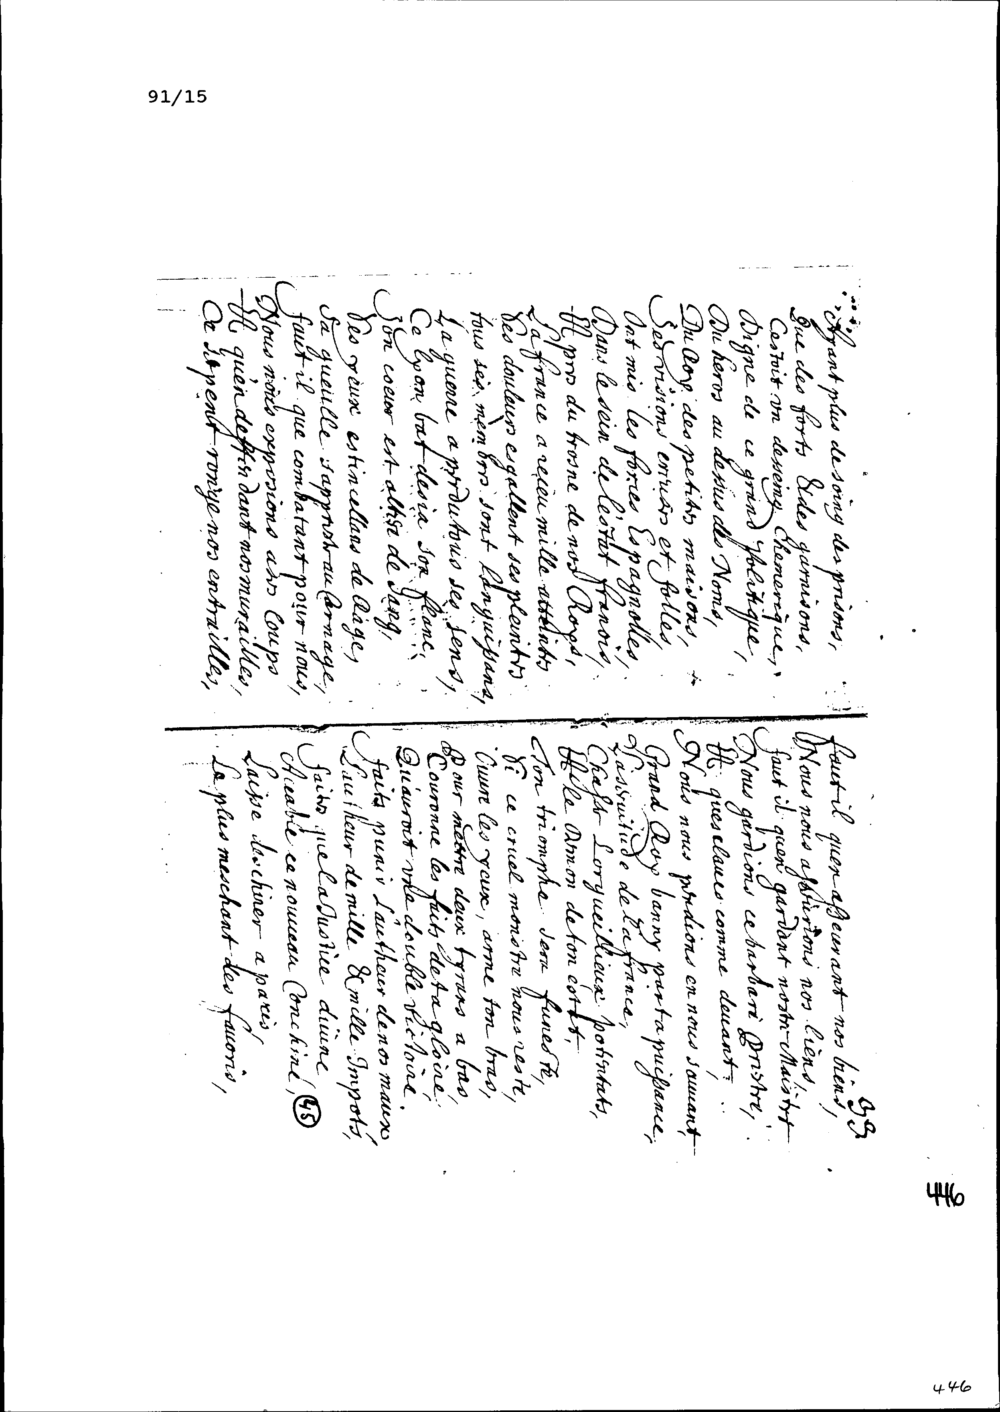 91/15
Ayant plus de soing des prisons,
Que des forts & des garnisons,
Cestoit vn desseing Chemerique,
Digne de ce grand Politique,
Du heros au dessus des Noms,
Du Roy des petites maisons,
Ses visions creuses et folles,
Ont mis les forces Espagnolles,
Dans le sein de lestat francois,
Et pres du trosne de nos Roys,
La france a receu mille atteintes
Ses douleurs esgallent ses pleintes
tous ses membres sont languissans,
La guerre a perdu tous ses sens,
Ce lyon bat desia son flanc,
Son coeur est altere de sang,
Ses yeux estincellans de Rage,
Sa gueulle sapreste au Carnage,
faut il que combatant pour nous,
Nous nous exposions a ses Coups
Et qu'en deffendant nos murailles,
Ce serpent ronge nos entrailles,
99
faut il quen asseurant nos biens,
Nous nous asseurions nos liens,
faut il quen gardant nostre Maistre
Nous gardions ce barbare Prestre,
Et quesclaues comme deuant,
Nous nous perdions en nous sauuant
Grand Roy banny par ta puissance,
Lasseruitude de la france,
Chasse Lorgueillieux potentats,
Et le Demon de ton estat,
Ton triomphe sera funeste,
Si ce cruel monstre nous reste,
Ouure les yeux, arme ton bras,
Pour mettre deux tyrans a bas
Couronne les faits de ta gloire,
Quauroit vne double victoire.
faits punir Lautheur de nos maux
Lautheur de mille & mille Impots,
faits que la Justice diuine
Accable ce nouueau Conchine,
45
Laisse deschirer a paris,
Le plus meschant des fauoris,
446
446